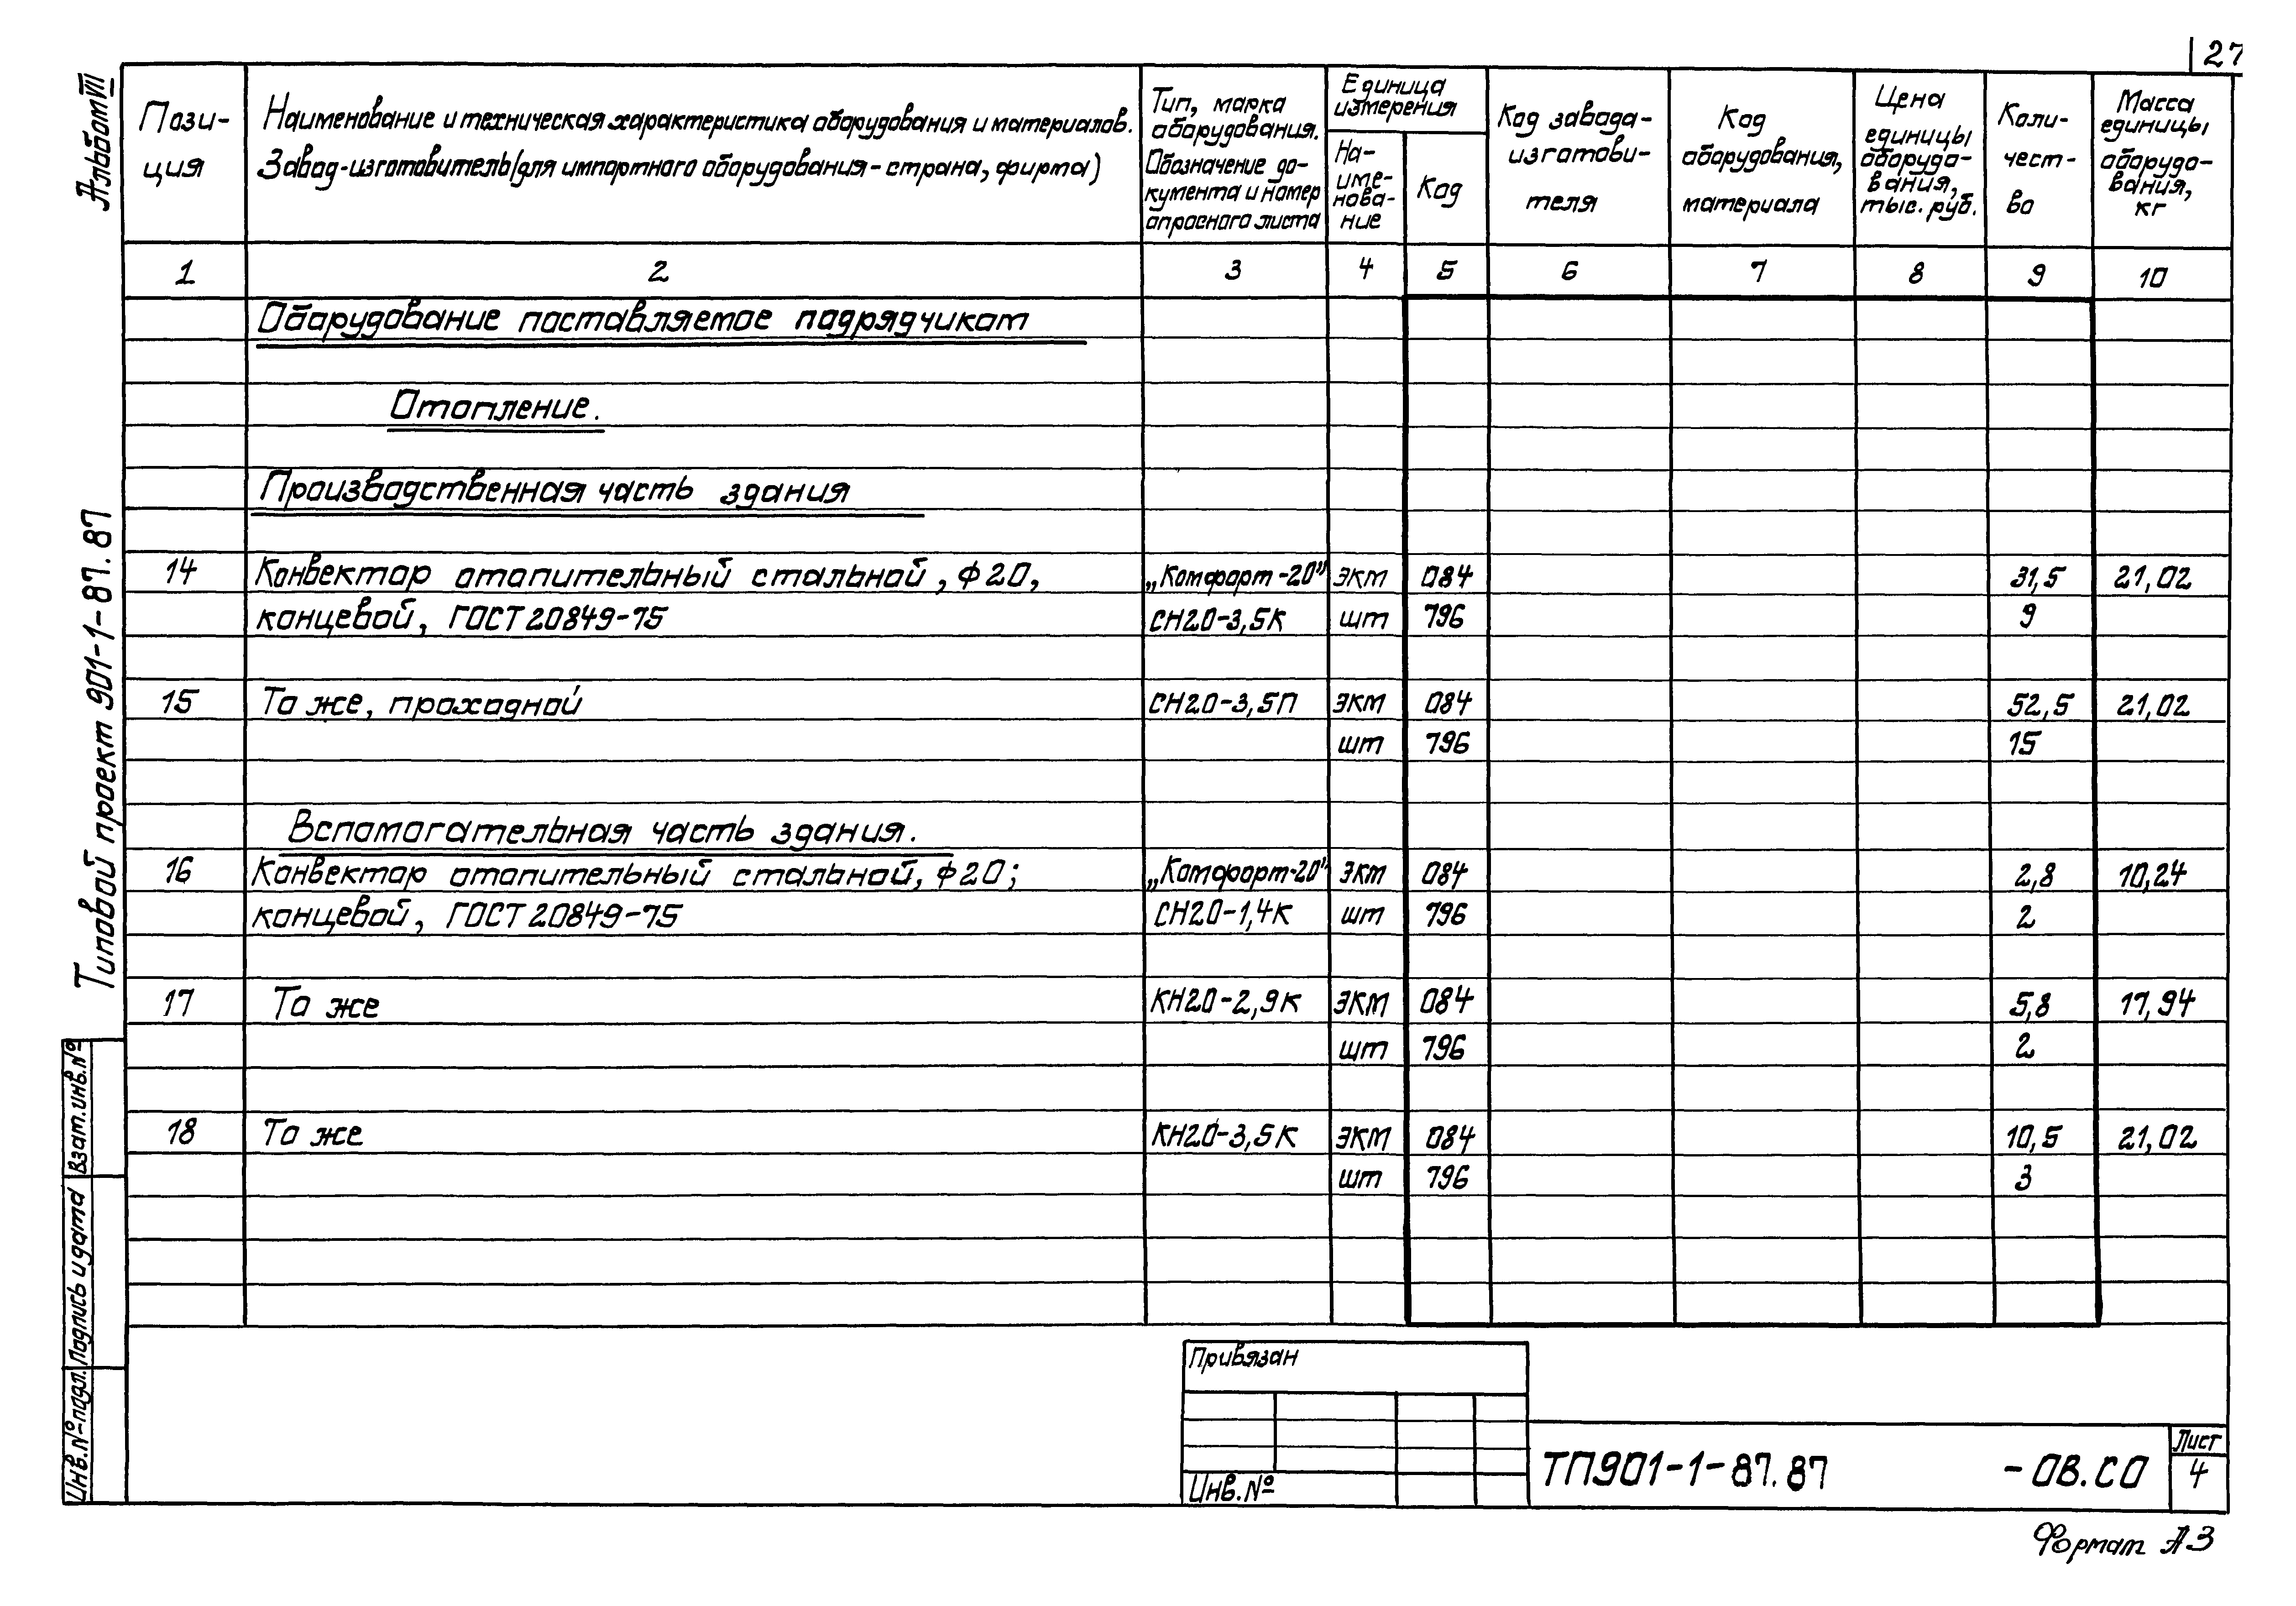 27
Альбом VII
Типовой проект 901-1-87.87
Взам.инв.№
Подпись и дата
Инв.№подл.
Пози-
ция
Наименование и техническая характеристика оборудования и материалов.
Завод-изготовитель(для импортного оборудования-страна, фирма)
Тип, марка
оборудования.
Обозначение до-
кумента и номер
опросного листа
Единица
измерения
На-
име-
нова-
ние
Код
Код завода-
изготови-
теля
Код
оборудования,
материала
Цена
единицы
оборудо-
вания,
тыс. руб.
Коли-
чест-
во
Масса
единицы
оборудо-
вания,
кг
1 2 3 4 5 6 7 8 9 10
Оборудование поставляемое подрядчиком
Отопление.
Производственная часть здания
14 Конвектор отопительный стальной, Ф20, „Комфорт-20" ЭКМ 084 31,5 21,02
концевой, ГОСТ 20849-75 СН20-3,5К шт 796 9
15 То же, проходной СН20-3,5П ЭКМ 084 52,5 21,02
шт 796 15
Вспомогательная часть здания.
16 Конвектор отопительный стальной, Ф20; „Комфорт-20" ЭКМ 084 2,8 10,24
концевой, ГОСТ 20849-75 СН20-1,4К шт 796 2
17 То же КН20-2,9К ЭКМ 084 5,8 17,94
шт 796 2
18 То же КН20-3,5К ЭКМ 084 10,5 21,02
шт 796 3
Привязан
Инв.№
ТП901-1-87.87 -ОВ.СО
Лист
4
Формат А3